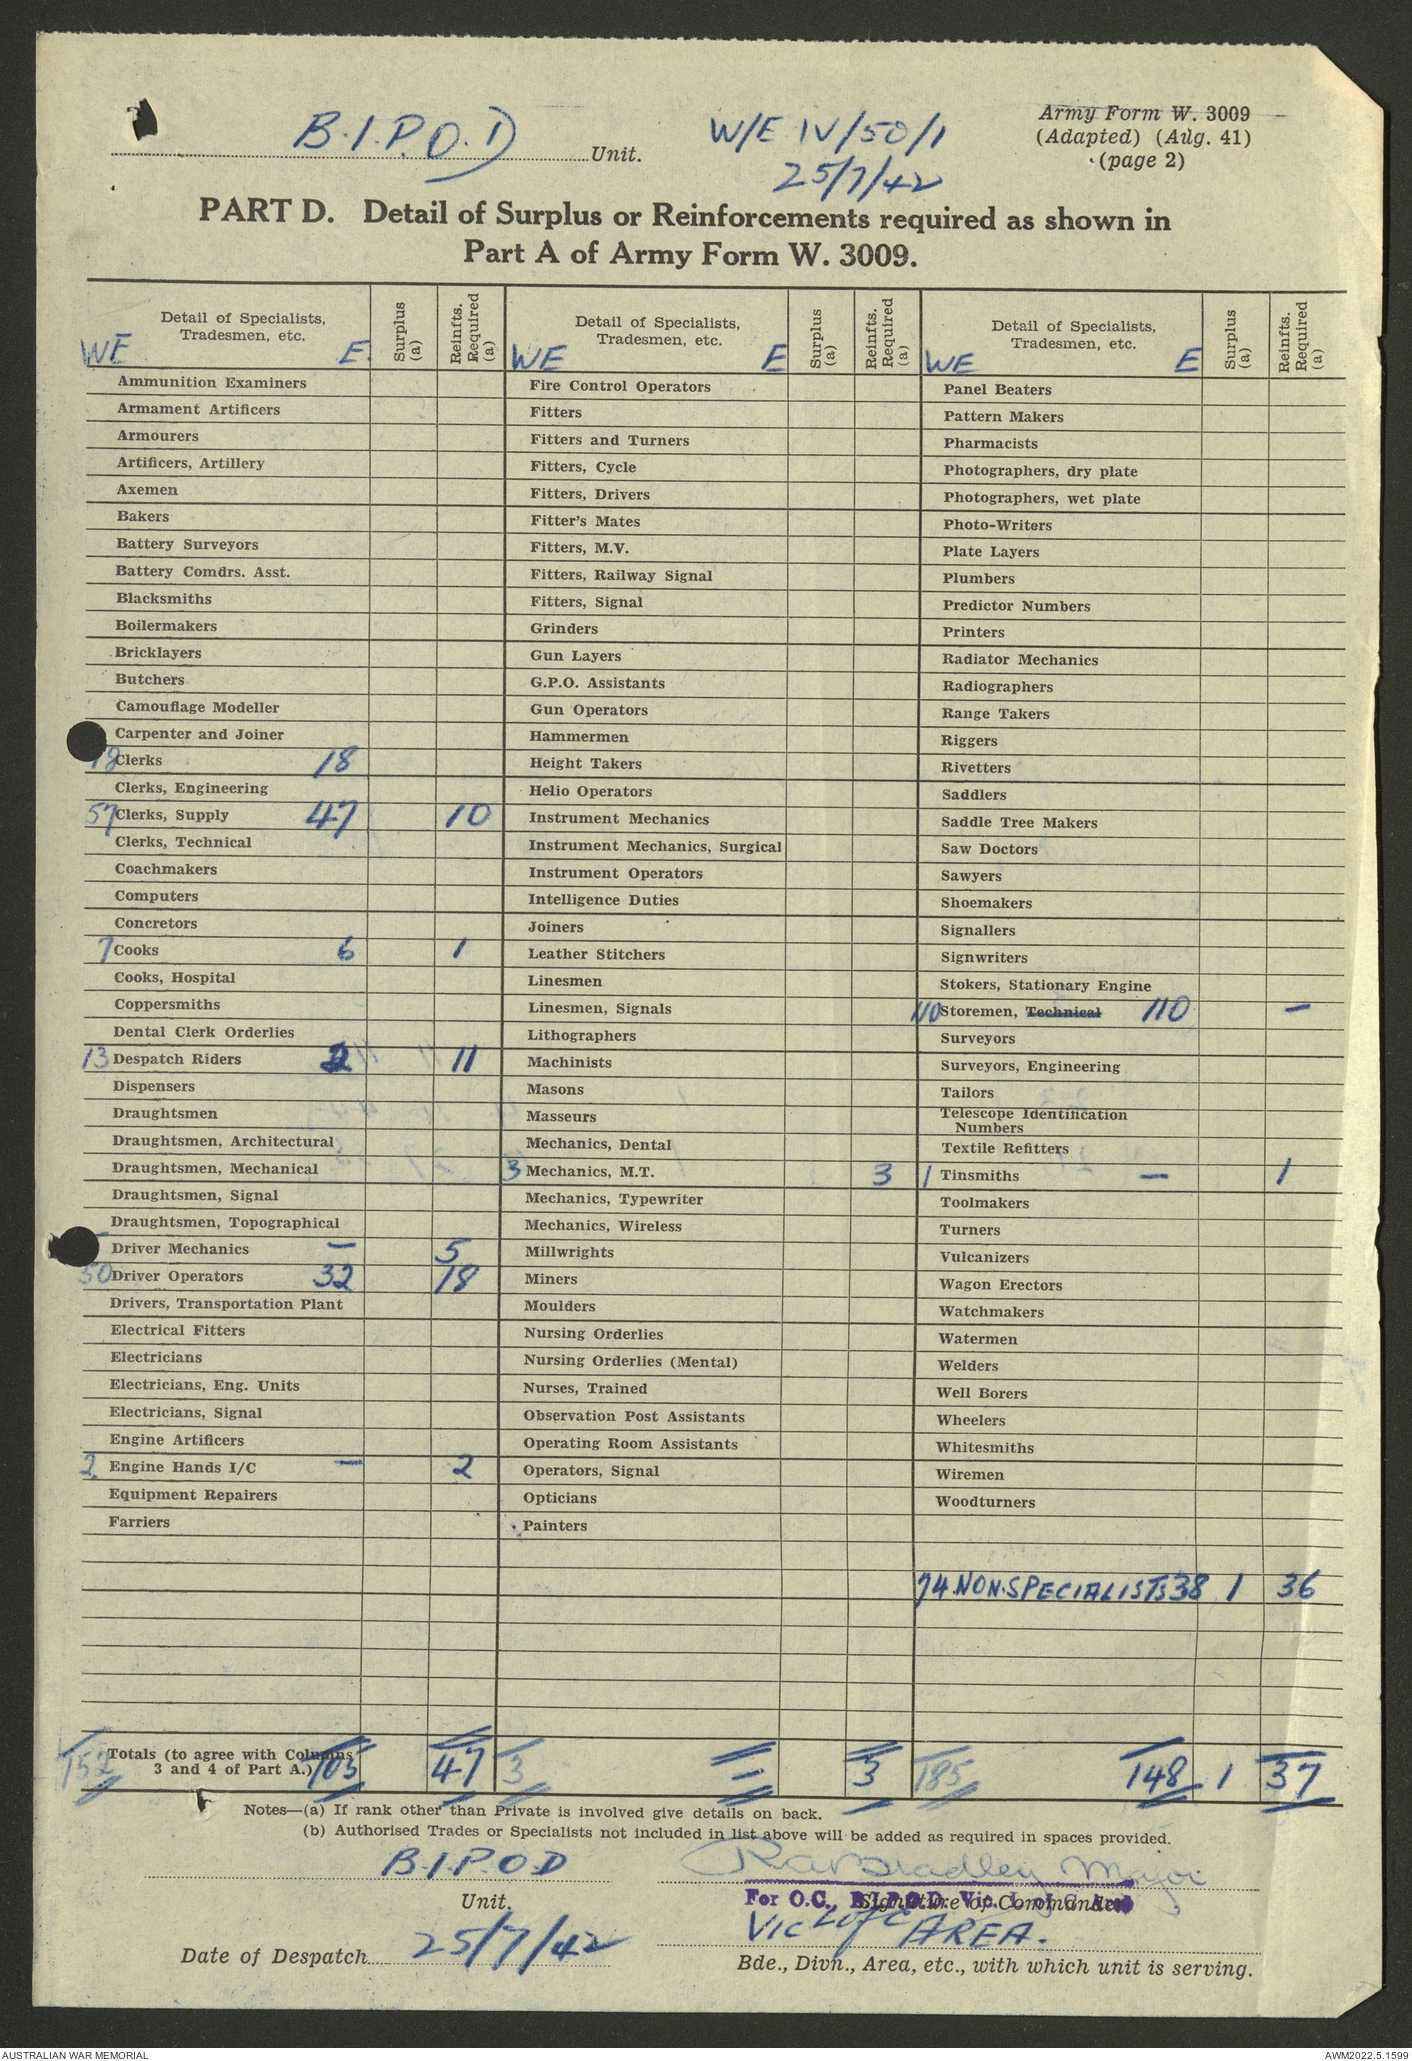 B.I.P.O.D Unit.
W/E IV/50/1
25/7/42
Army Form W. 3009
(Adapted) (Aug. 41)
(page 2)
PART D. Detail of Surplus or Reinforcements required as shown in
Part A of Army Form W. 3009.
Detail of Specialists,
Tradesmen, etc.
WE E.
Surplus
(a)
Reinfts.
Required
(a)
Ammunition Examiners
Armament Artificers
Armourers
Artificers, Artillery
Axemen
Bakers
Battery Surveyors
Battery Comdrs. Asst.
Blacksmiths
Boilermakers
Bricklayers
Butchers
Camouflage Modeller
Carpenter and Joiner
18 Clerks 18
Clerks, Engineering
57 Clerks, Supply 47 10
Clerks, Technical
Coachmakers
Computers
Concretors
7 Cooks 6 1
Cooks, Hospital
Coppersmiths
Dental Clerk Orderlies
13 Despatch Riders 2 11
Dispensers
Draughtsmen
Draughtsmen, Architectural
Draughtsmen, Mechanical
Draughtsmen, Signal
Draughtsmen, Topographical
Driver Mechanics — 5
50 Driver Operators 32 18
Drivers, Transportation Plant
Electrical Fitters
Electricians
Electricians, Eng. Units
Electricians, Signal
Engine Artificers
2 Engine Hands I/C — 2
Equipment Repairers
Farriers
Totals (to agree with Columns
3 and 4 of Part A.)
152 105 47
Detail of Specialists,
Tradesmen, etc.
WE E
Surplus
(a)
Reinfts.
Required
(a)
Fire Control Operators
Fitters
Fitters and Turners
Fitters, Cycle
Fitters, Drivers
Fitter's Mates
Fitters, M.V.
Fitters, Railway Signal
Fitters, Signal
Grinders
Gun Layers
G.P.O. Assistants
Gun Operators
Hammermen
Height Takers
Helio Operators
Instrument Mechanics
Instrument Mechanics, Surgical
Instrument Operators
Intelligence Duties
Joiners
Leather Stitchers
Linesmen
Linesmen, Signals
Lithographers
Machinists
Masons
Masseurs
Mechanics, Dental
3 Mechanics, M.T. 3
Mechanics, Typewriter
Mechanics, Wireless
Millwrights
Miners
Moulders
Nursing Orderlies
Nursing Orderlies (Mental)
Nurses, Trained
Observation Post Assistants
Operating Room Assistants
Operators, Signal
Opticians
Painters
3 — 3
Detail of Specialists,
Tradesmen, etc.
WE E
Surplus
(a)
Reinfts.
Required
(a)
Panel Beaters
Pattern Makers
Pharmacists
Photographers, dry plate
Photographers, wet plate
Photo-Writers
Plate Layers
Plumbers
Predictor Numbers
Printers
Radiator Mechanics
Radiographers
Range Takers
Riggers
Rivetters
Saddlers
Saddle Tree Makers
Saw Doctors
Sawyers
Shoemakers
Signallers
Signwriters
Stokers, Stationary Engine
110 Storemen, Technical 110 —
Surveyors
Surveyors, Engineering
Tailors
Telescope Identification
Numbers
Textile Refitters
1 Tinsmiths — 1
Toolmakers
Turners
Vulcanizers
Wagon Erectors
Watchmakers
Watermen
Welders
Well Borers
Wheelers
Whitesmiths
Wiremen
Woodturners
74 NON.SPECIALISTS 38 1 36
185 148 1 37
Notes—(a) If rank other than Private is involved give details on back.
(b) Authorised Trades or Specialists not included in list above will be added as required in spaces provided.
B.I.P.O.D
Unit.
Date of Despatch 25/7/42
Bradley Major
For O.C., B.I.P.O.D. Vic. L. of C. Area
Signature of Commander
VIC L of C AREA.
Bde., Divn., Area, etc., with which unit is serving.
AUSTRALIAN WAR MEMORIAL
AWM2022.5.1599